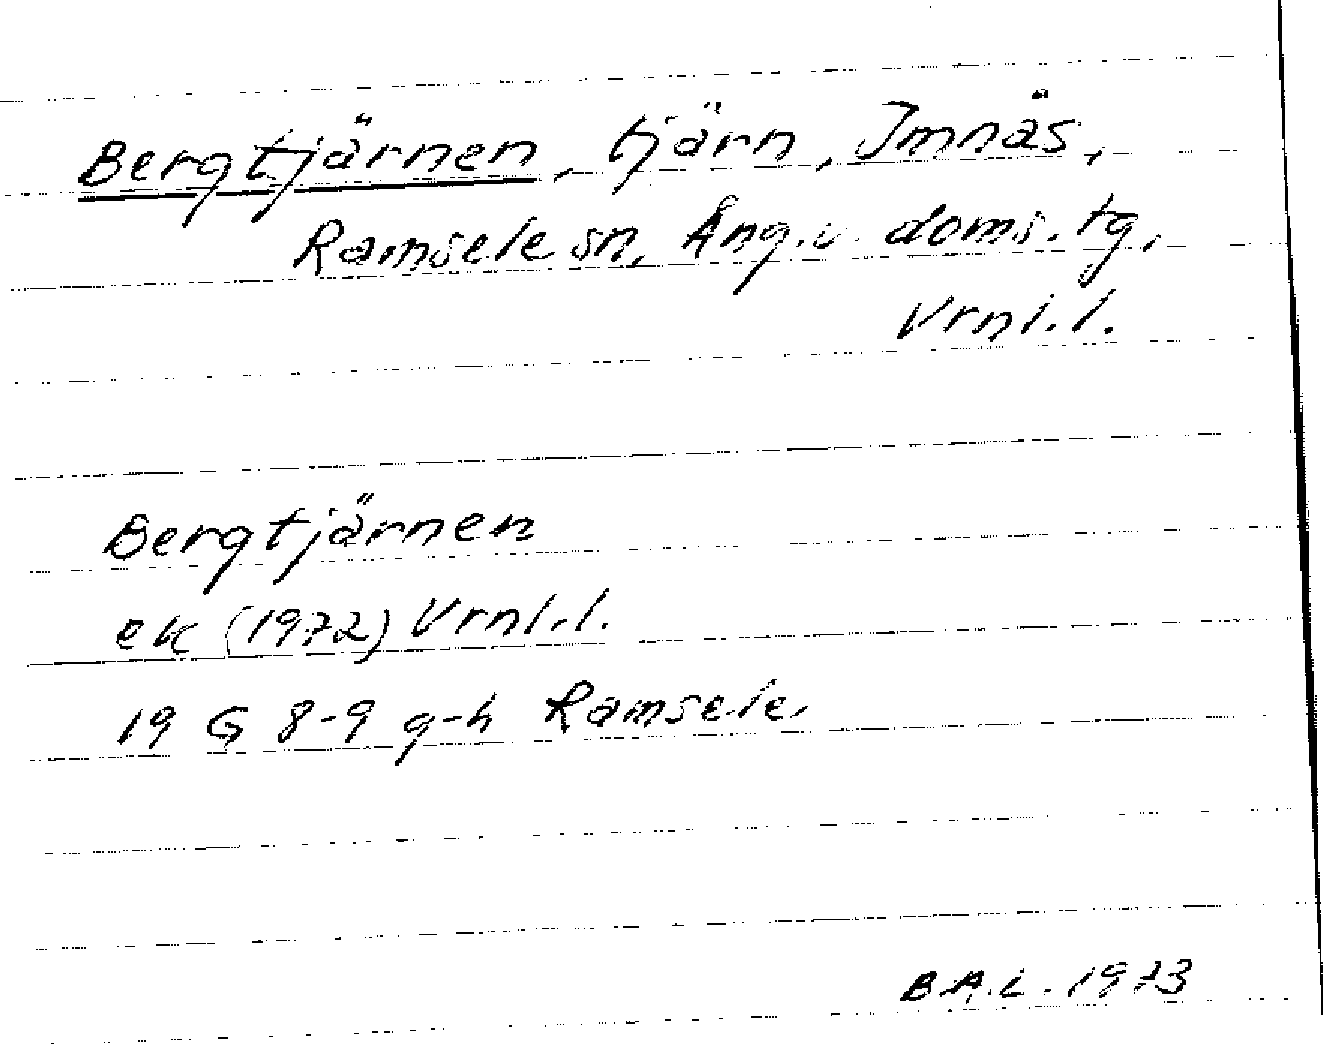 Bergtjärnen, tjärn, Imnäs,
Ramsele sn, Ång. v. doms. tg,
Vrnl. l.
Bergtjärnen
ek (1972) Vrnl. l.
19 G 8-9 g-h Ramsele.
B.A.L. 1973